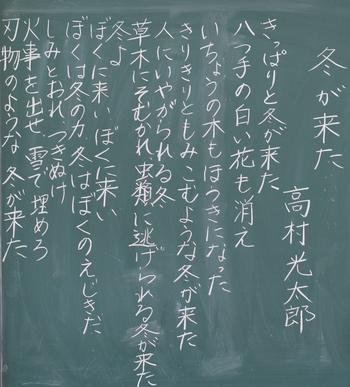 冬が来た
高村光太郎
きっぱりと冬が来た
八つ手の白い花も消え
いちょうの木もほうきになった
きりきりともみこむような冬が来た
人にいやがられる冬
草木にそむかれ虫類に逃げられる冬が来た
冬よ
ぼくに来いぼくに来い
ぼくは冬の力冬はぼくのえじきだ
しみとおれつきぬけ
火事を出せ雪で埋めろ
刃物のような冬が来た